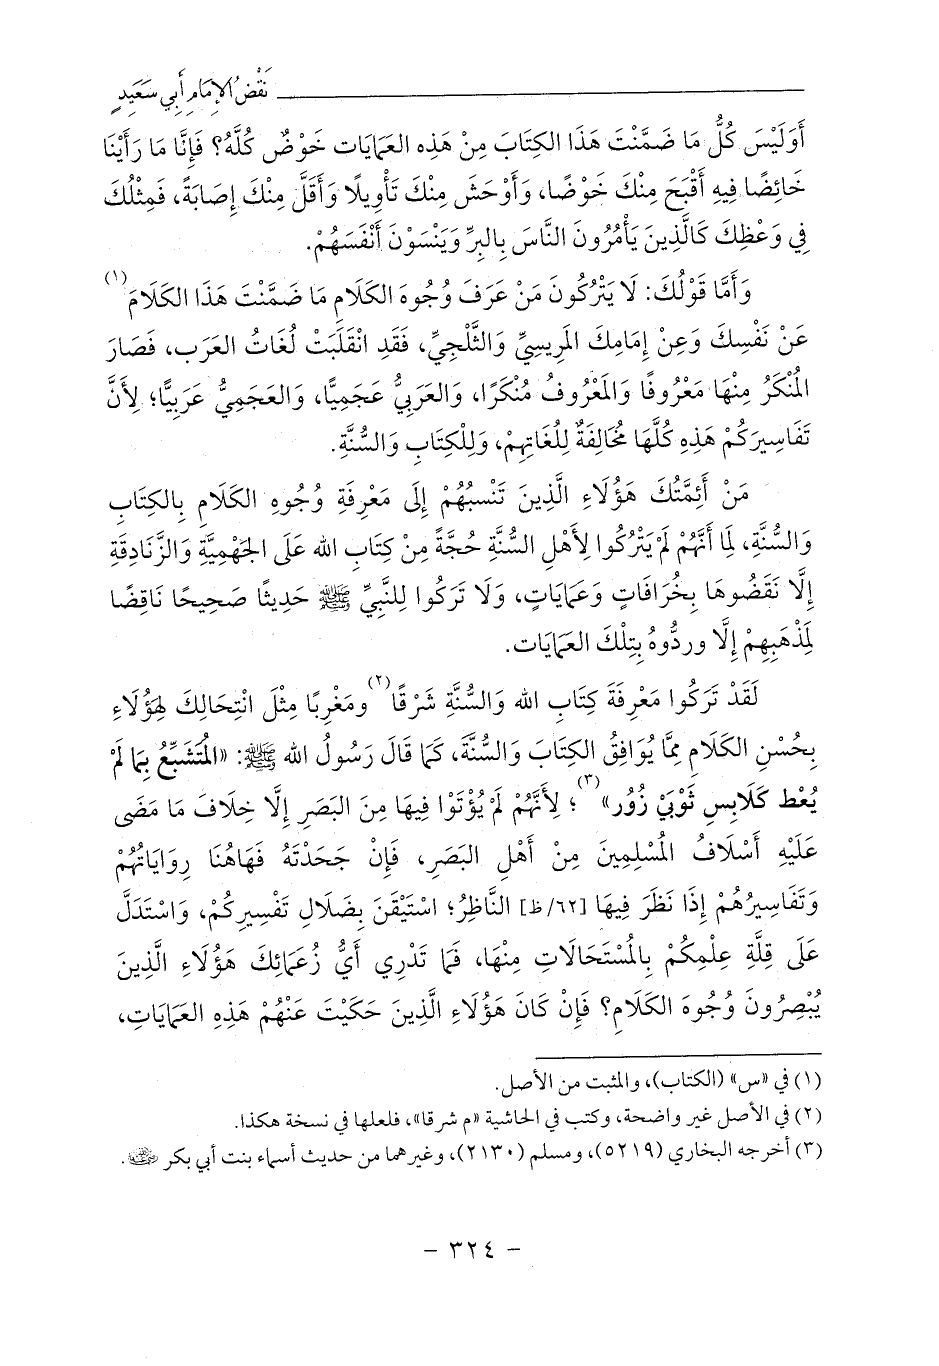 نَقْضُ الإِمَامِ أَبِي سَعِيدٍ
أَوَلَيْسَ كُلُّ مَا ضَمَّنْتَ هَذَا الكِتَابَ مِنْ هَذِهِ العَمَايَاتِ خَوْضٌ كُلُّهُ؟ فَإِنَّا مَا رَأَيْنَا
خَائِضًا فِيهِ أَقْبَحَ مِنْكَ خَوْضًا، وَأَوْحَشَ مِنْكَ تَأْوِيلًا وَأَقَلَّ مِنْكَ إِصَابَةً، فَمِثْلُكَ
فِي وَعْظِكَ كَالَّذِينَ يَأْمُرُونَ النَّاسَ بِالبِرِّ وَيَنْسَوْنَ أَنْفُسَهُمْ.
وَأَمَّا قَوْلُكَ: لَا يَتْرُكُونَ مَنْ عَرَفَ وُجُوهَ الكَلَامِ مَا ضَمَّنْتَ هَذَا الكَلَامَ(١)
عَنْ نَفْسِكَ وَعِنْ إِمَامِكَ المَرِيسِيِّ وَالثَّلْجِيِّ، فَقَدِ انْقَلَبَتْ لُغَاتُ العَرَبِ، فَصَارَ
المُنْكَرُ مِنْهَا مَعْرُوفًا وَالمَعْرُوفُ مُنْكَرًا، وَالعَرَبِيُّ عَجَمِيًّا، وَالعَجَمِيُّ عَرَبِيًّا؛ لِأَنَّ
تَفَاسِيرَكُمْ هَذِهِ كُلَّهَا مُخَالِفَةٌ لِلُغَاتِهِمْ، وَلِلْكِتَابِ وَالسُّنَّةِ.
مَنْ أَئِمَّتُكَ هَؤُلَاءِ الَّذِينَ تَنْسِبُهُمْ إِلَى مَعْرِفَةِ وُجُوهِ الكَلَامِ بِالكِتَابِ
وَالسُّنَّةِ، لِمَا أَنَّهُمْ لَمْ يَتْرُكُوا لِأَهْلِ السُّنَّةِ حُجَّةً مِنْ كِتَابِ الله عَلَى الجَهْمِيَّةِ وَالزَّنَادِقَةِ
إِلَّا نَقَضُوهَا بِخُرَافَاتٍ وَعَمَايَاتٍ، وَلَا تَرَكُوا لِلنَّبِيِّ ﷺ حَدِيثًا صَحِيحًا نَاقِضًا
لِمَذْهَبِهِمْ إِلَّا وردُّوهُ بِتِلْكَ العَمَايَات.
لَقَدْ تَرَكُوا مَعْرِفَةَ كِتَابِ الله وَالسُّنَّةِ شَرْقًا(٢) ومَغْرِبًا مِثْلَ انْتِحَالِكَ لِهَؤُلَاءِ
بِحُسْنِ الكَلَامِ مِمَّا يُوَافِقُ الكِتَابَ وَالسُّنَّةَ، كَمَا قَالَ رَسُولُ الله ﷺ: «المُتَشَبِّعُ بِمَا لَمْ
يُعْط كَلَابِسِ ثَوْبَيْ زُوُر»(٣)؛ لِأَنَّهُمْ لَمْ يُؤْتَوْا فِيهَا مِنَ البَصَرِ إِلَّا خِلَافَ مَا مَضَى
عَلَيْهِ أَسْلَافُ المُسْلِمِينَ مِنْ أَهْلِ البَصَرِ، فَإِنْ جَحَدْتَهُ فَهَاهُنَا رِوَايَاتُهُمْ
وَتَفَاسِيرُهُمْ إِذَا نَظَرَ فِيهَا [٦٢/ظ] النَّاظِرُ؛ اسْتَيْقَنَ بِضَلَالِ تَفْسِيرِكُمْ، وَاسْتَدَلَّ
عَلَى قِلَّةِ عِلْمِكُمْ بِالمُسْتَحَالَاتِ مِنْهَا، فَمَا تَدْرِي أَيُّ زُعَمَائِكَ هَؤُلَاءِ الَّذِينَ
يُبْصِرُونَ وُجُوهَ الكَلَامِ؟ فَإِنْ كَانَ هَؤُلَاءِ الَّذِينَ حَكَيْتَ عَنْهُمْ هَذِهِ العَمَايَاتِ،
(١) في «س» (الكتاب)، والمثبت من الأصل.
(٢) في الأصل غير واضحة، وكتب في الحاشية «م شرقا»، فلعلها في نسخة هكذا.
(٣) أخرجه البخاري (٥٢١٩)، ومسلم (٢١٣٠)، وغيرهما من حديث أسماء بنت أبي بكر.
- ٣٢٤ -